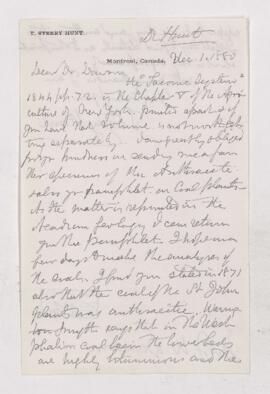 T. STERRY HUNT.
Dr Hunt
Montreal, Canada, Dec. 1. 1880
Dear Dr Dawson
the "Taconic System"
1844 pp. 72 is the Chapter V of the Agri-
culture of New York. printed apart. If
you have that volume it is not worth
ting separately. I am greatly obliged
for your kindness in sending me a fur-
ther specimen of the Anthracite
also yr pamphlet on Coal plants
As the matter is reprinted in the
Acadian Geology I can return
you the pamphlet. I hope in a
few days to make the analyses of
the coals. I find you stated in 1871
also that the coal of the St John
plants was anthracitic. Waring-
ton Smyth says that in the West-
phalian coal basin the lower beds
are highly bituminous and the